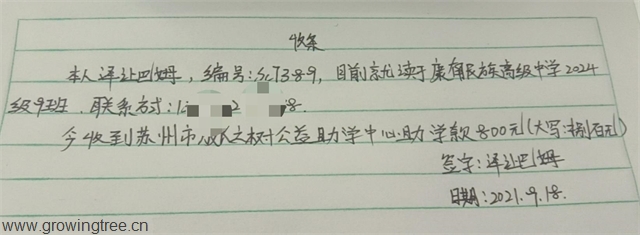 收条
本人泽让巴姆,编号:SC7389,目前就读于康南民族高级中学2024
级9班.联系方式:1
今收到苏州市 之树公益助学中心助学款800元(大写:捌佰元)
签字:泽让巴姆
日期:2021.9.18.
www.growingtree.cn